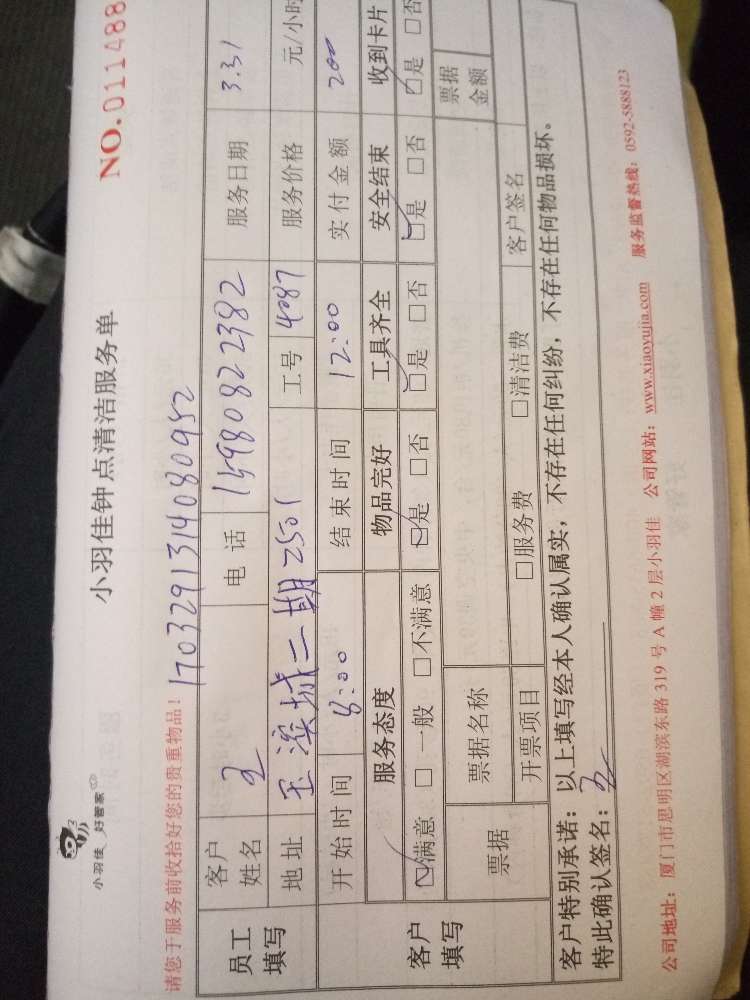 小羽佳 好管家
小羽佳钟点清洁服务单
NO.011488
请您于服务前收拾好您的贵重物品！
1703291314080952
员工填写 客户姓名 电话 15980822382 服务日期 3.31
地址 二期2501 工号 4087 服务价格 元/小时
客户填写 开始时间 8:00 结束时间 12:00 实付金额 200
服务态度 物品完好 工具齐全 安全结束 收到卡片
☑满意 □一般 □不满意 ☑是 □否 ☑是 □否 ☑是 □否 ☑是 □否
票据 票据名称 票据金额
开票项目 □服务费 □清洁费 客户签名
客户特别承诺：以上填写经本人确认属实，不存在任何纠纷，不存在任何物品损坏。
特此确认签名：
公司地址：厦门市思明区湖滨东路319号A幢2层小羽佳 公司网站：www.xiaoyujia.com 服务监督热线：0592-5888123